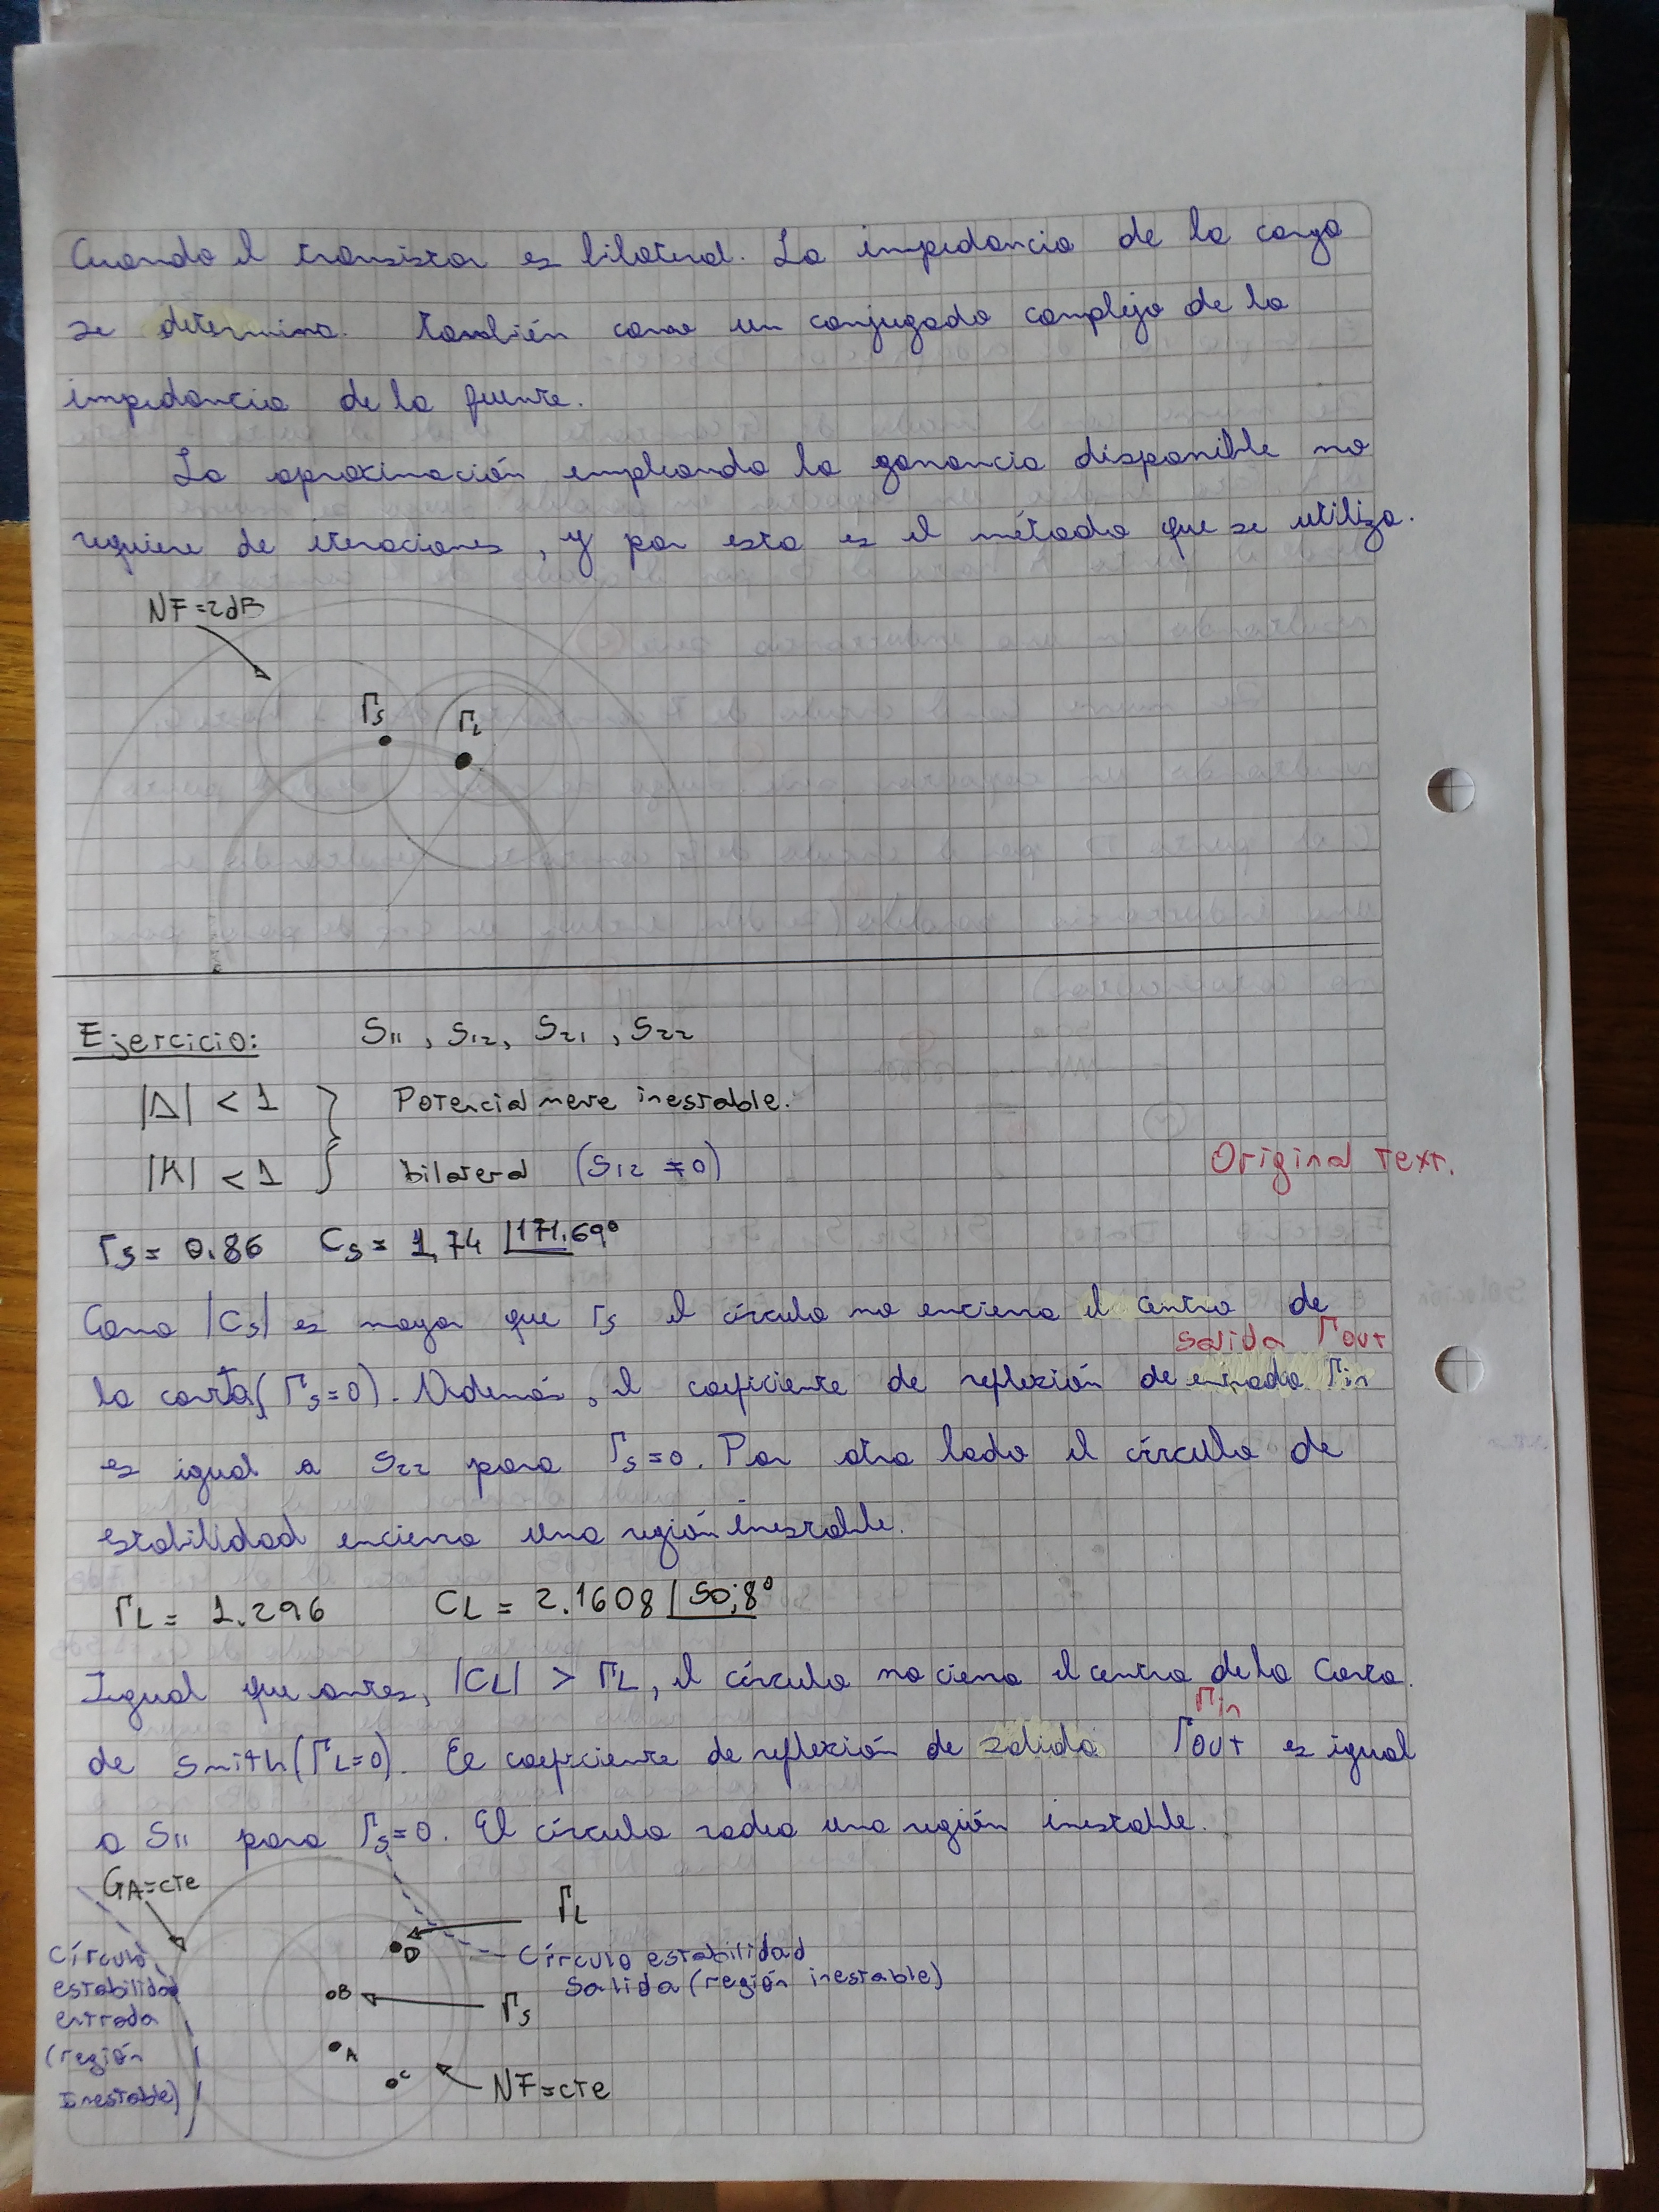 Cuando el transistor es bilateral. La impedancia de la carga
se determina. también como un conjugado complejo de la
impedancia de la fuente.
La aproximación empleando la ganancia disponible no
requiere de iteraciones, y por esto es el método que se utiliza.
NF=2dB
Γs
ΓL
Ejercicio: S11, S12, S21, S22
|Δ| < 1 } Potencialmente inestable.
|K| < 1 } bilateral (S12 ≠ 0)
Original Text.
rs = 0.86 Cs = 1,74 ∠171.69°
Como |Cs| es mayor que rs el círculo no encierra el centro de
salida Γout
la carta (Γs=0). Además, el coeficiente de reflexión de entrada Γin
es igual a S22 para Γs=0. Por otro lado el círculo de
estabilidad encierra una región inestable.
rL = 1.296 CL = 2.1608 ∠50.8°
Igual que antes, |CL| > rL, el círculo no cierra el centro de la Carta.
Γin
de Smith (ΓL=0). El coeficiente de reflexión de salida Γout es igual
a S11 para Γs=0. El círculo rodea una región inestable.
GA=cte
ΓL
D
Círculo estabilidad
Salida (región inestable)
Círculo
estabilidad
entrada
(región
Inestable)
B
Γs
A
C
NF=cte